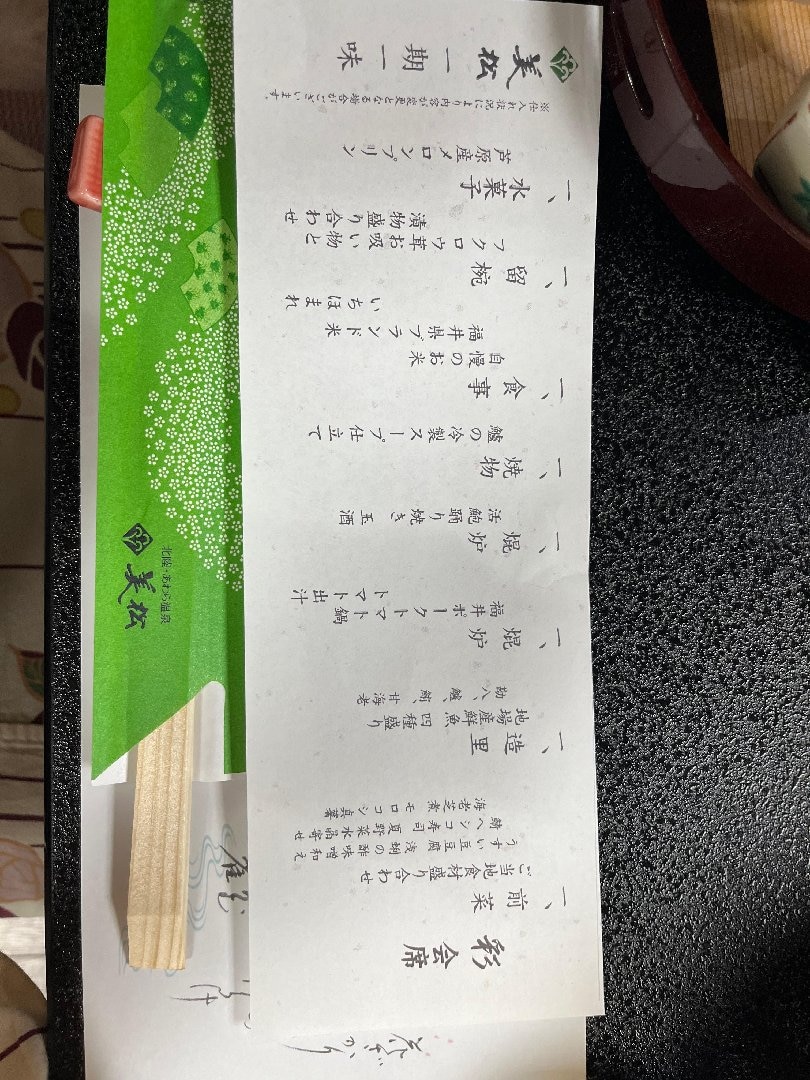 彩会席
一、前菜
ご当地食材盛り合わせ
うすい豆豆腐 浅蜊の酢味噌和え
鯖へシコ寿司 夏野菜水晶寄せ
海老芝煮 モロコシ真薯
一、造里
地場産鮮魚、四種盛り
勘八、鱸、鮪、甘海老
一、焜炉
福井ポークトマト鍋
トマト出汁
一、焜炉
活鮑踊り焼き 玉酒
一、焼物
鱸の冷製スープ仕立て
一、食事
自慢のお米
福井県ブランド米
いちほまれ
一、留椀
フクロウ茸お吸い物と
漬物盛り合わせ
一、水菓子
芦原産メロンプリン
※仕入れ状況により内容が変更となる場合がございます。
美松
一期一味
北陸・あわら温泉
美松